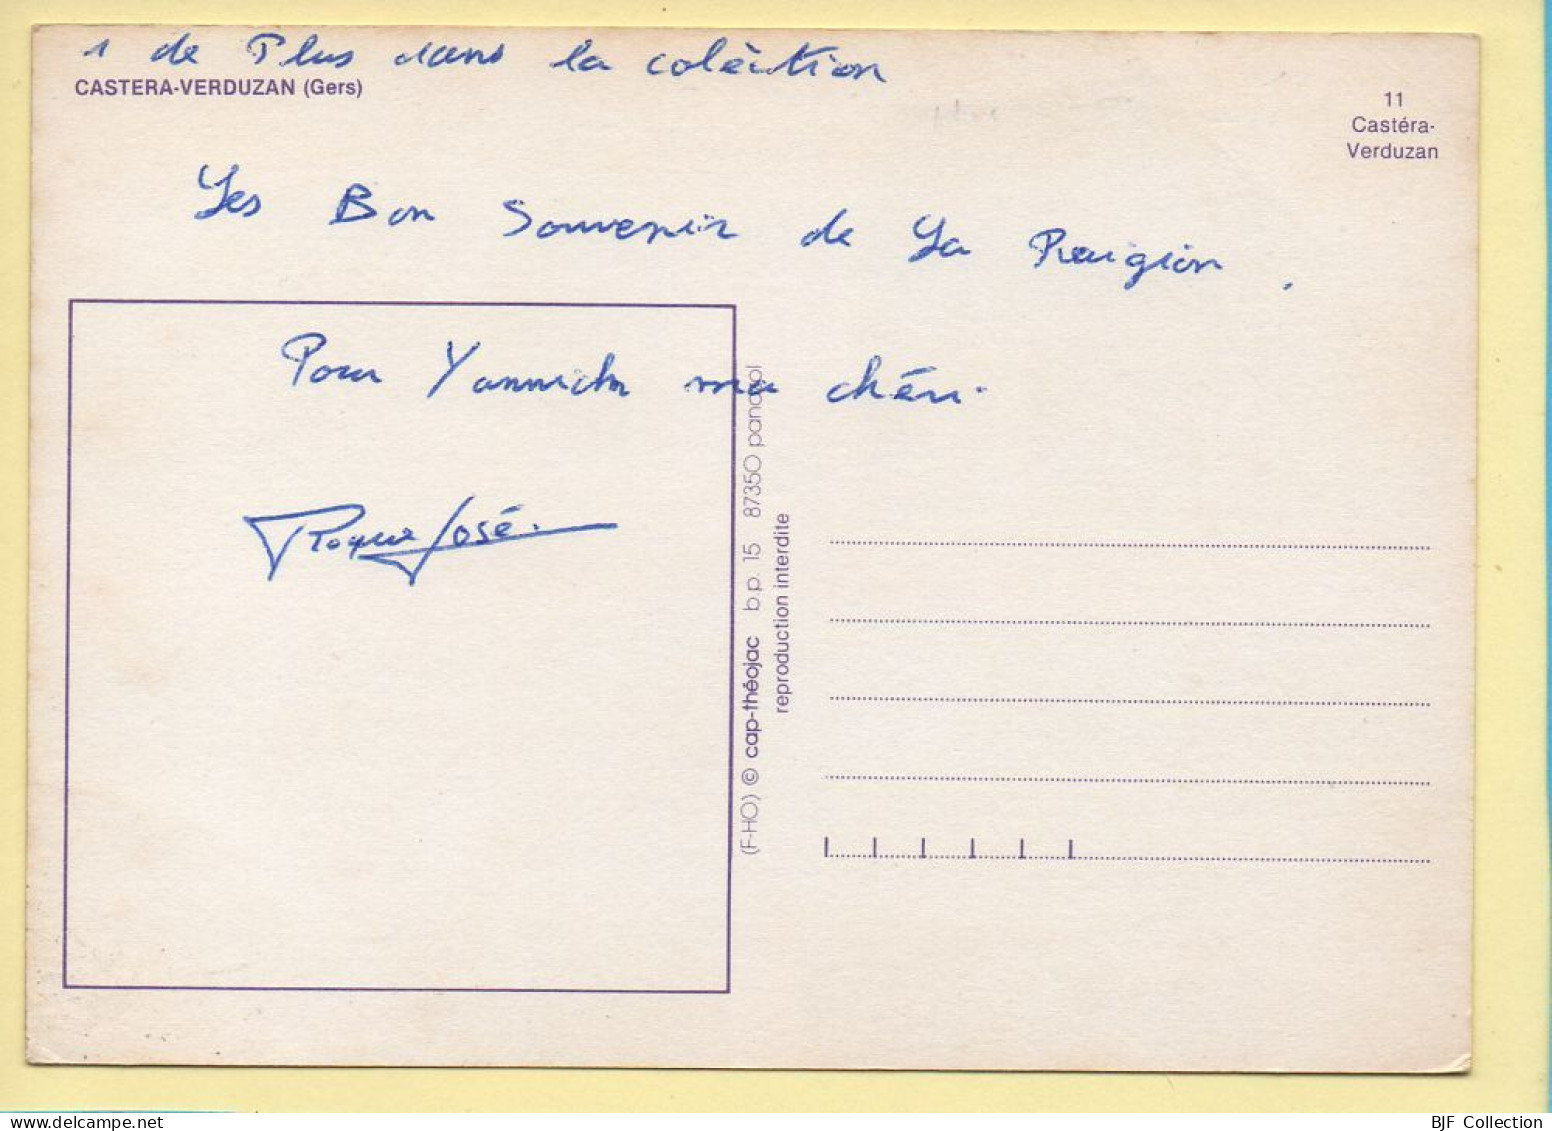 1 de Plus dans la colèction
CASTERA-VERDUZAN (Gers)
11
Castéra-
Verduzan
Les Bon Souvenir de La Raigion .
Pour Yannick ma chéri.
Roque José.
(F-HO) © cap-théojac b.p. 15 87350 panazol
reproduction interdite
BJF Collection